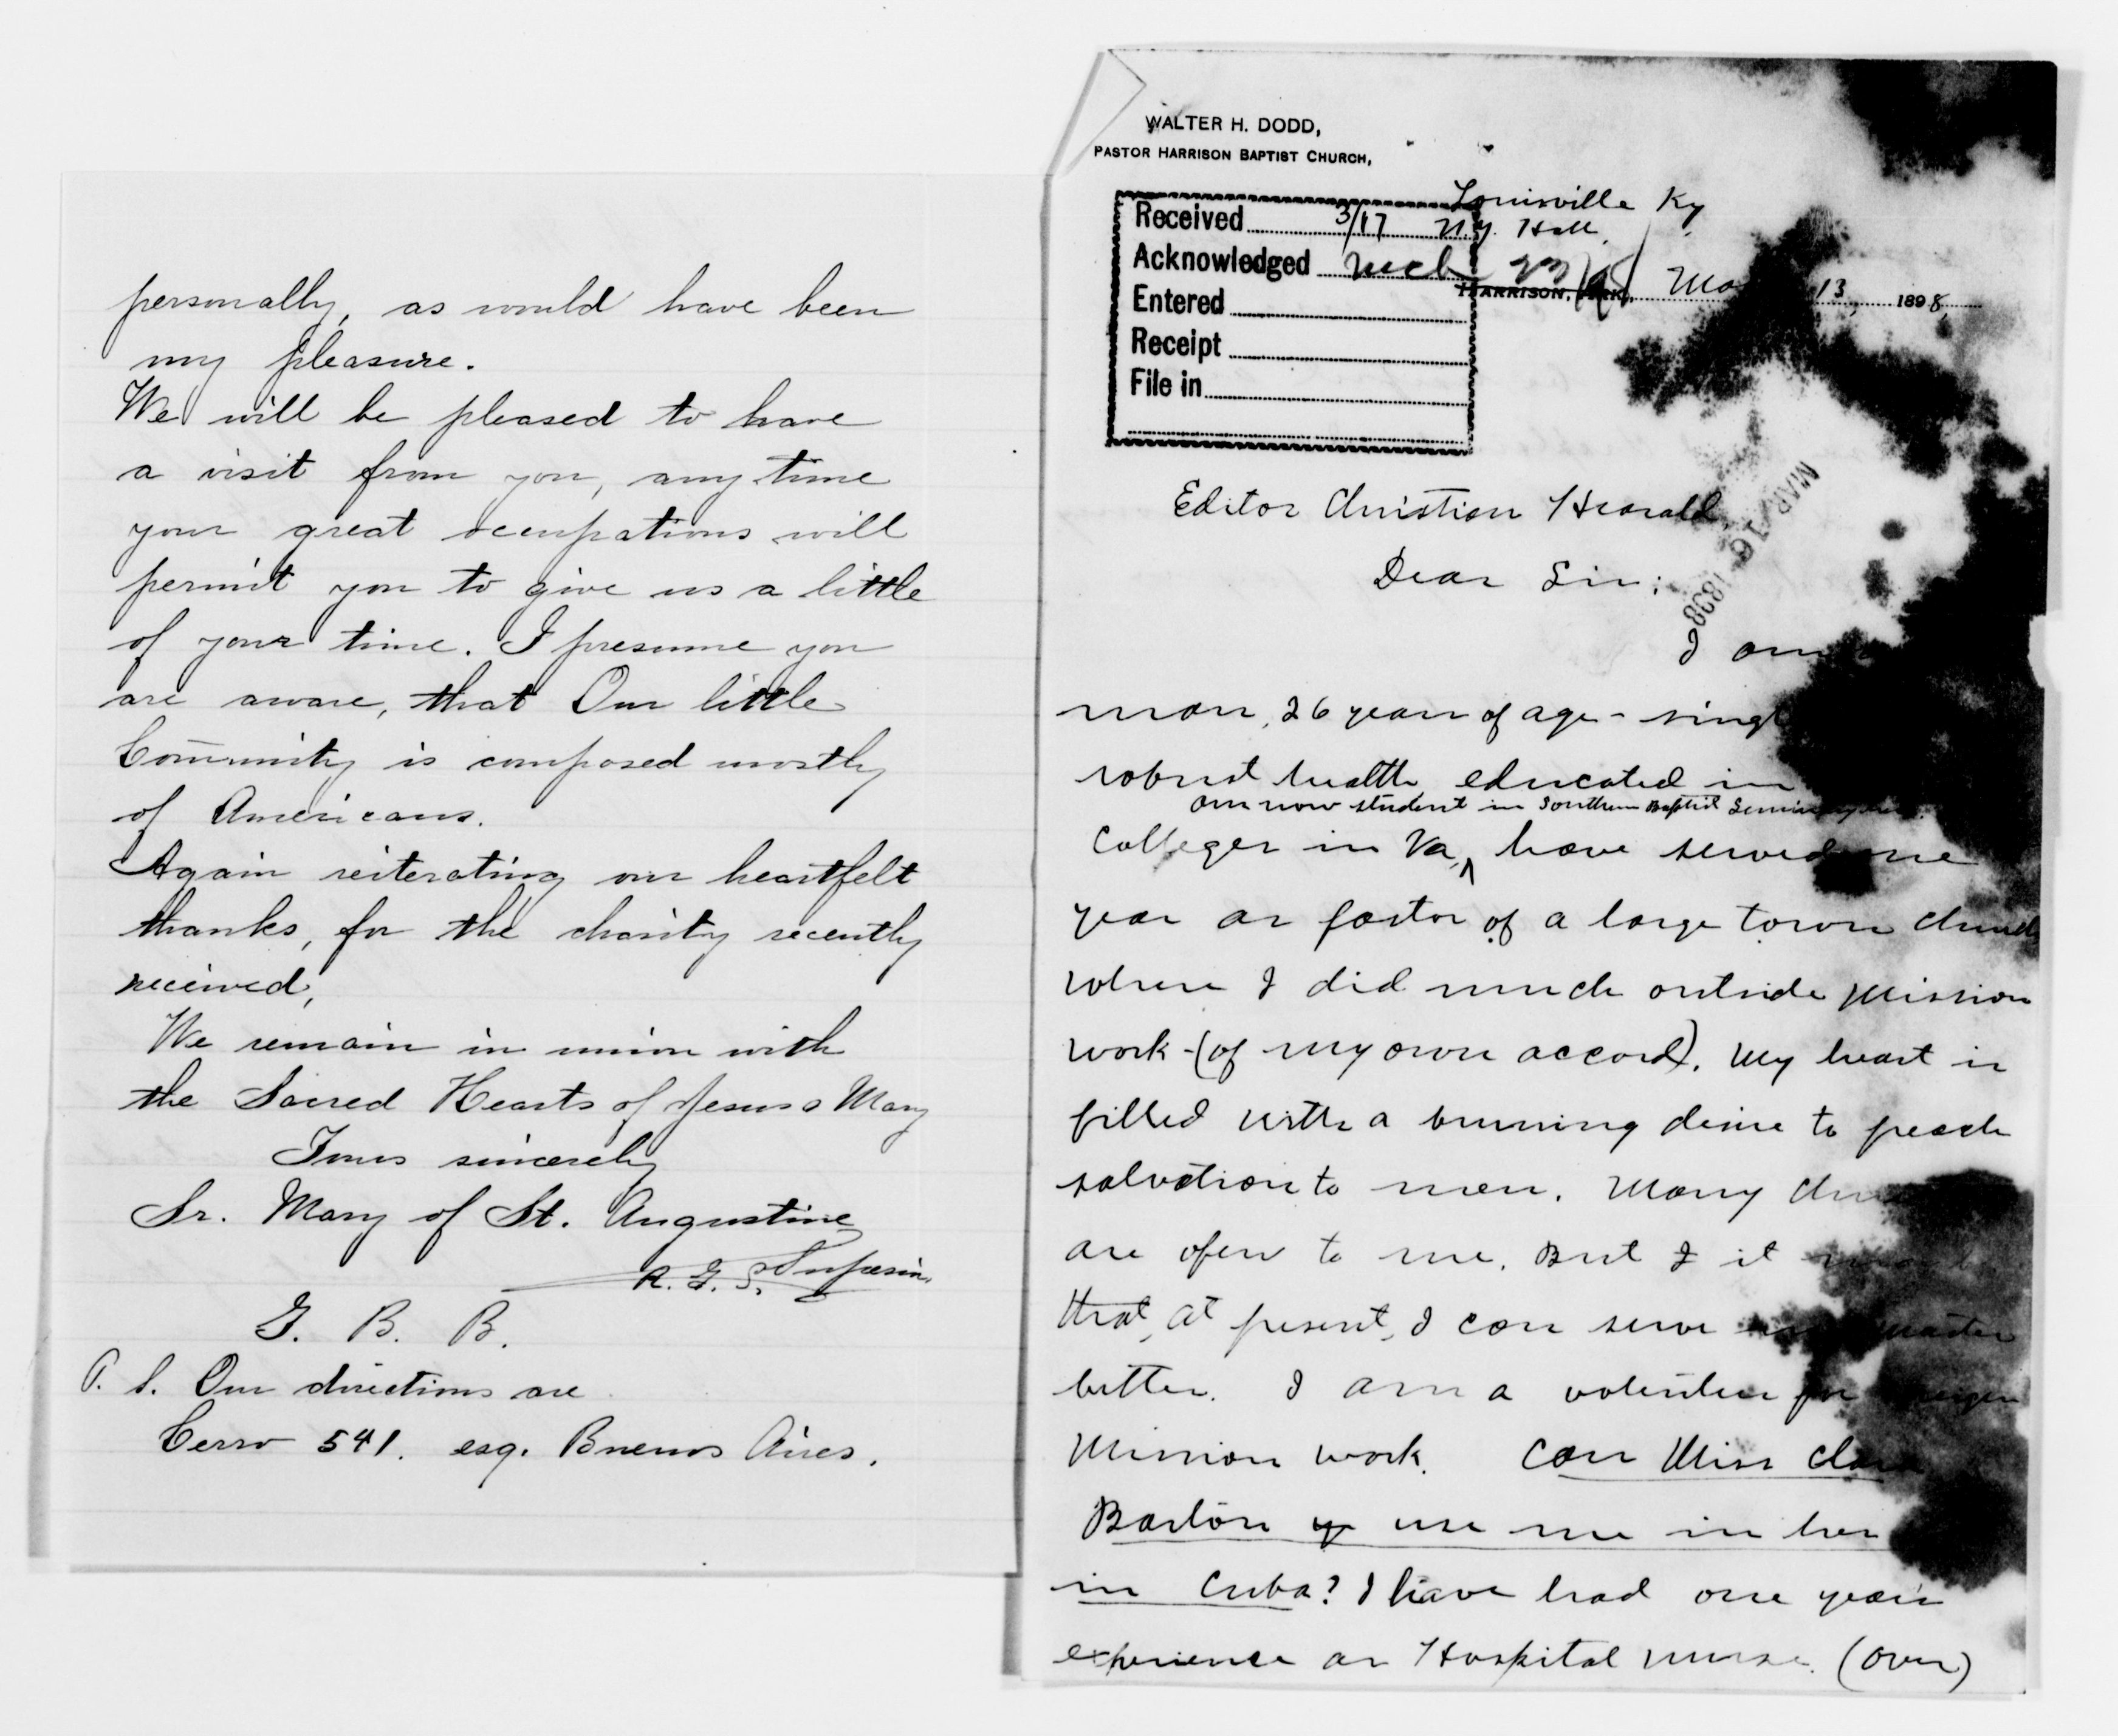 personally, as would have been
my pleasure.
We will be pleased to have
a visit from you, any time
your great occupations will
permit you to give us a little
of your time. I presume you
are aware, that Our little
Community is composed mostly
of Americans.
Again reiterating our heartfelt
thanks, for the charity recently
received,
We remain in union with
the Sacred Hearts of Jesus & Mary
Yours sincerely
Sr. Mary of St. Augustine
Superior
G. B. B.
P. S. Our directions are
Cerro 541. esq. Buenos Aires.
WALTER H. DODD,
PASTOR HARRISON BAPTIST CHURCH,
Louisville Ky
Received 3/17 N.Y. Hall,
Acknowledged Mch 23/98
HARRISON, ARK., 13, 1898
Entered
Receipt
File in
Editor Christian Hearald,
MAR 16 1898
Dear Sir:
I am
man, 26 years of age - singl
robust health, educated in
am now student in Southern Baptist Seminary
Colleges in Va, ^ have served one
year as pastor of a large town church
where I did much outside mission
work - (of my own accord). My heart is
filled with a burning desire to preach
salvation to men. Many
are open to me. But I it
that, at present, I can serve master
better. I am a volunteer for
Mission work. Can Miss Clara
Barton use me in her
in Cuba? I have had one year's
experience as Hospital nurse. (over)